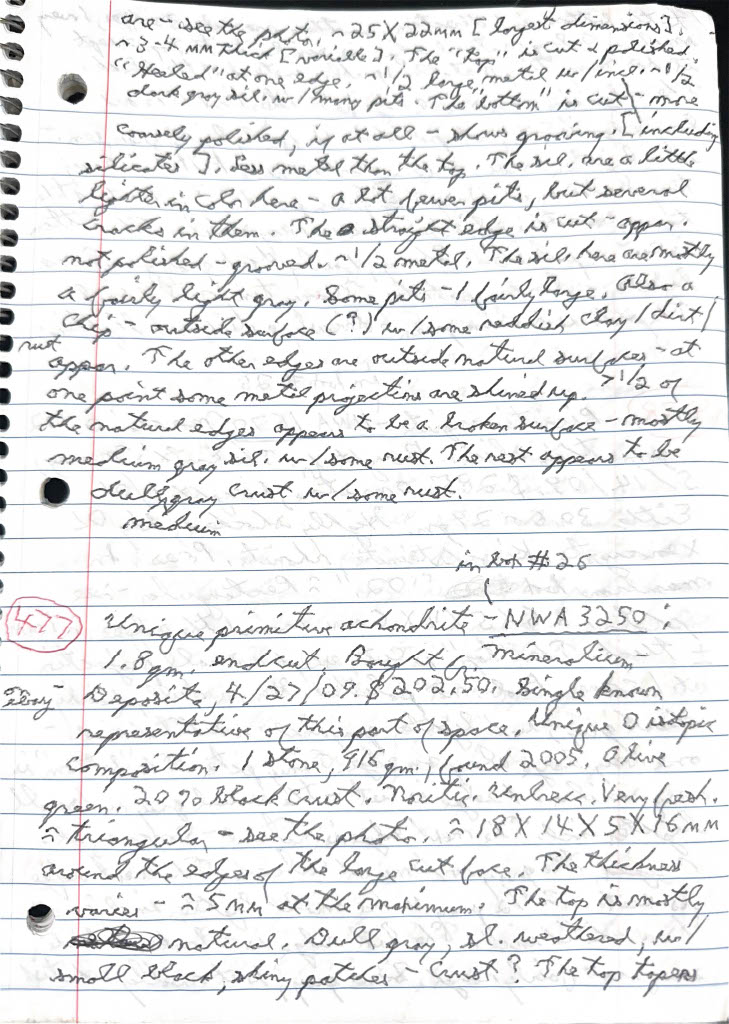 are - see the photo. ~25X22mm [largest dimensions].
~3-4 mm thick [variable]. The "top" is cut & polished.
"Healed" at one edge. ~1/2 large metal w/incl. ~1/2
dark gray sil. w/many pits. The "bottom" is cut - more
coarsely polished, if at all - shows grooving. [including
silicates]. Less metal than the top. The sil. are a little
lighter in color here - a lot fewer pits, but several
cracks in them. The straight edge is cut - appar.
not polished - grooved. ~1/2 metal. The sil. here are mostly
a fairly light gray. Some pits - 1 fairly large. Also a
chip - outside surface (?) w/some reddish clay/dirt/
rust
appar. The other edges are outside natural surfaces - at
one point some metal projections are shined up. >1/2 of
the natural edges appears to be a broken surface - mostly
medium gray sil. w/some rust. The rest appears to be
dull gray crust w/some rust.
medium
in box #26
477 Unique primitive achondrite - NWA 3250:
1.8 gm. endcut. Bought Mineralium-
Ebay - Deposits, 4/27/09. $202.50. Single known
representative of this part of space. Unique O isotopic
composition. 1 stone, 916 gm., found 2005. Olive
green. 20% black crust. Noritic. Unbrecc. Very fresh.
≈ triangular - see the photo. ≈ 18X14X5X16mm
around the edges of the large cut face. The thickness
varies - ≈5mm at the maximum. The top is mostly
natural. Dull gray, sl. weathered, w/
small black, shiny patches - crust? The top tapers